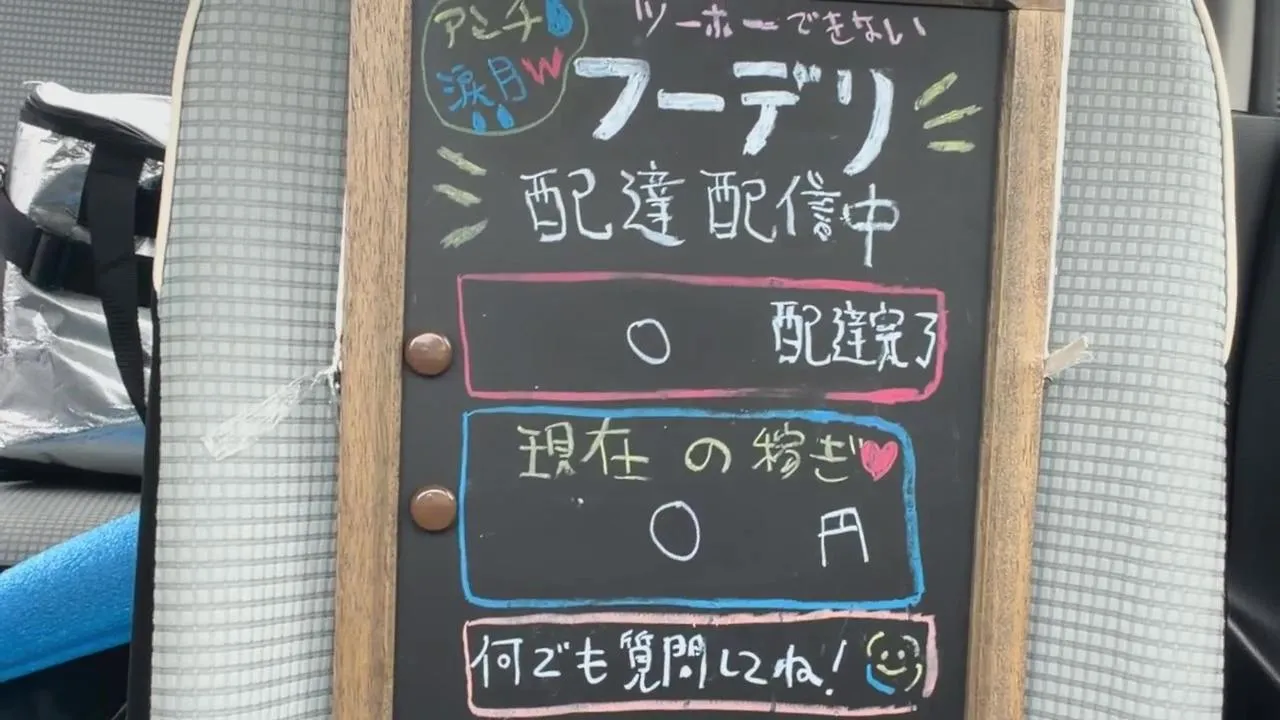 アンチ
涙月W
ツーホーできない
フーデリ
配達配信中
○ 配達完了
現在の稼ぎ
○ 円
何でも質問してね!